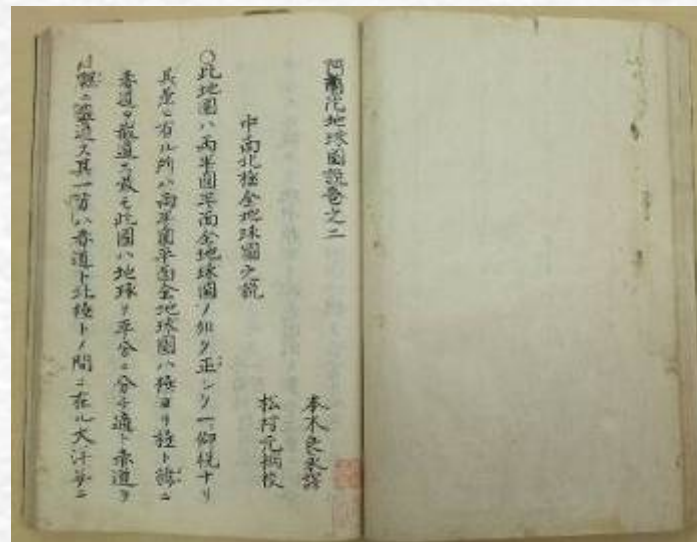 阿蘭陀地球圖説巻之二
本木良永譯
松村元綱校
中南北極全地球圖之説
〇此地圖ハ両半圓平面全地球圖ノ如ク正シク一御税ナリ
其差ヒ有ル所ハ両半圓平面全地球圖ハ極ヨリ極ト
赤道ヲ截道ス最モ此圖ハ地球ヲ平分ニ分チ適ト赤道ヲ
截道ス其一皆ハ赤道ト北極トノ間ニ在ル大